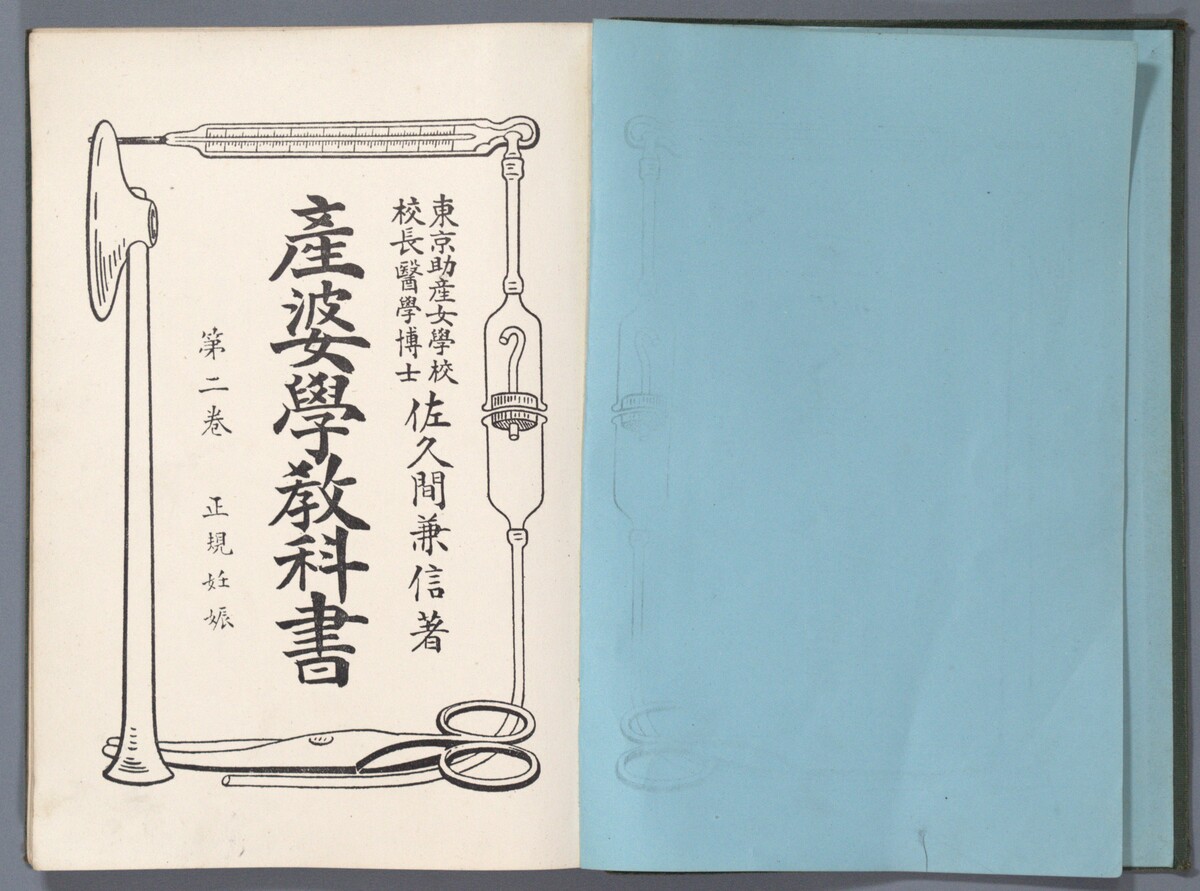 東京助産女學校
校長醫學博士
佐久間兼信著
產婆學教科書
第二卷 正規妊娠